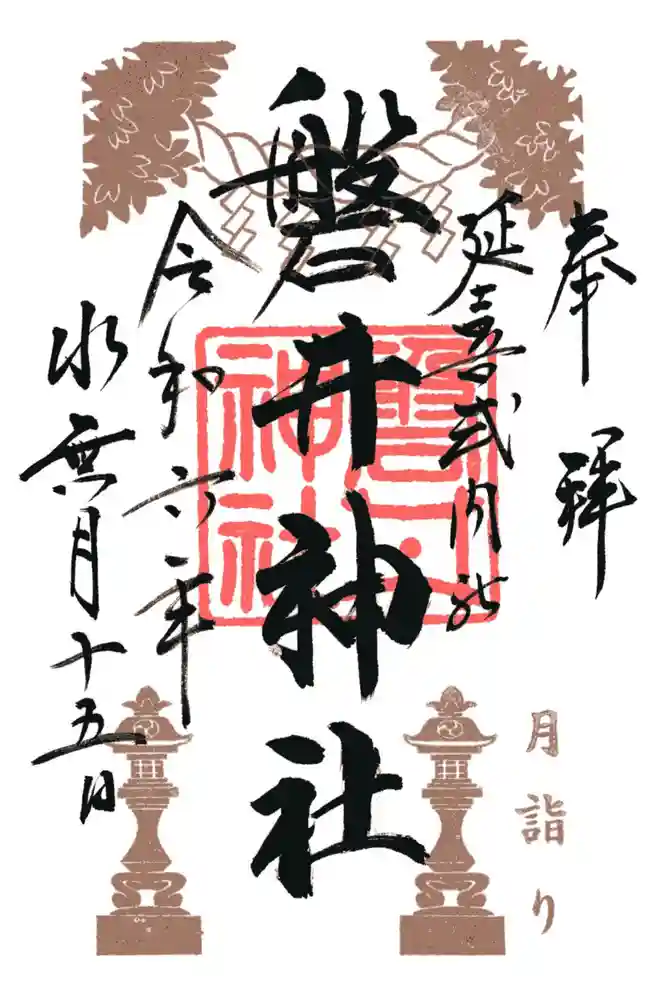 奉拝
延喜式内社
月詣り
磐井神社
磐井神社
令和六年
水無月十五日